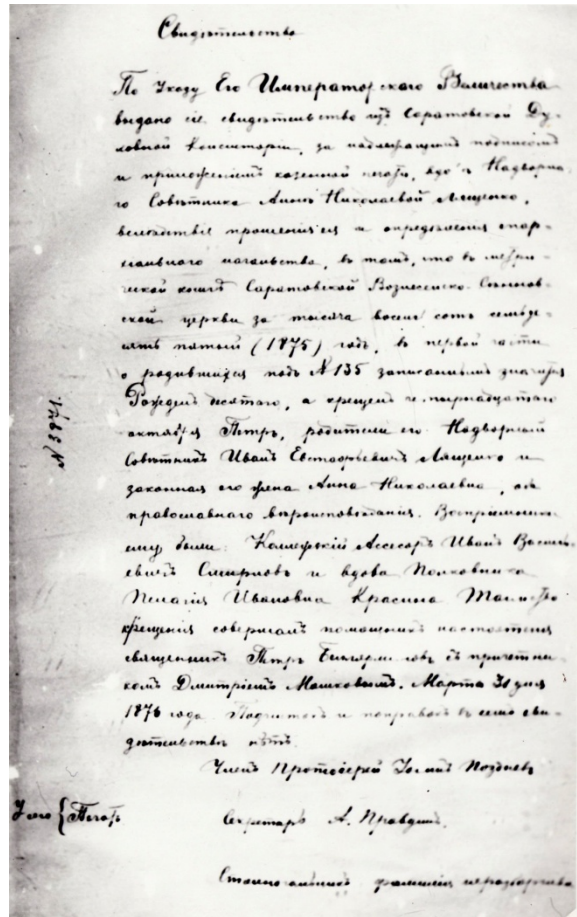 Свидѣтельство
По Указу Его Императорскаго Величества
выдано сіе свидѣтельство изъ Саратовской Ду-
ховной Консисторіи, за надлежащимъ подписомъ
и приложеніемъ казенной печати, вдовѣ Надворна-
го Совѣтника Аннѣ Николаевой Лященко,
вслѣдствіе прошенія ея и опредѣленія епар-
хіальнаго начальства, въ томъ, что въ метри-
ческой книгѣ Саратовской Вознесенско-Сѣнной
ской церкви за тысяча восемь сотъ семьде-
сятъ пятый (1875) годъ, въ первой части
о родившихся подъ № 135 записаннымъ значится
Рожденъ десятаго, а крещенъ четырнадцатаго
октября Петръ, родители его: Надворный
Совѣтникъ Иванъ Евстафьевичъ Лященко и
законная его жена Анна Николаевна, оба
православнаго вѣроисповѣданія. Воспріемники
ему были: Коллежскій Ассесоръ Иванъ Василь-
евичъ Смирновъ и вдова Полковника
Пелагія Ивановна Красина Таинство
крещенія совершалъ помощникъ настоятеля
священникъ Петръ съ причетни-
комъ Дмитріемъ Мошковымъ. Марта 30 дня
1876 года. Подчистокъ и поправокъ въ семъ сви-
дѣтельствѣ нѣтъ.
Членъ Протоіерей Іоаннъ Позднев
Секретарь А. Правдинъ.
У сего { Печать
Столоначальникъ фамилія неразборчива
№ 3971.